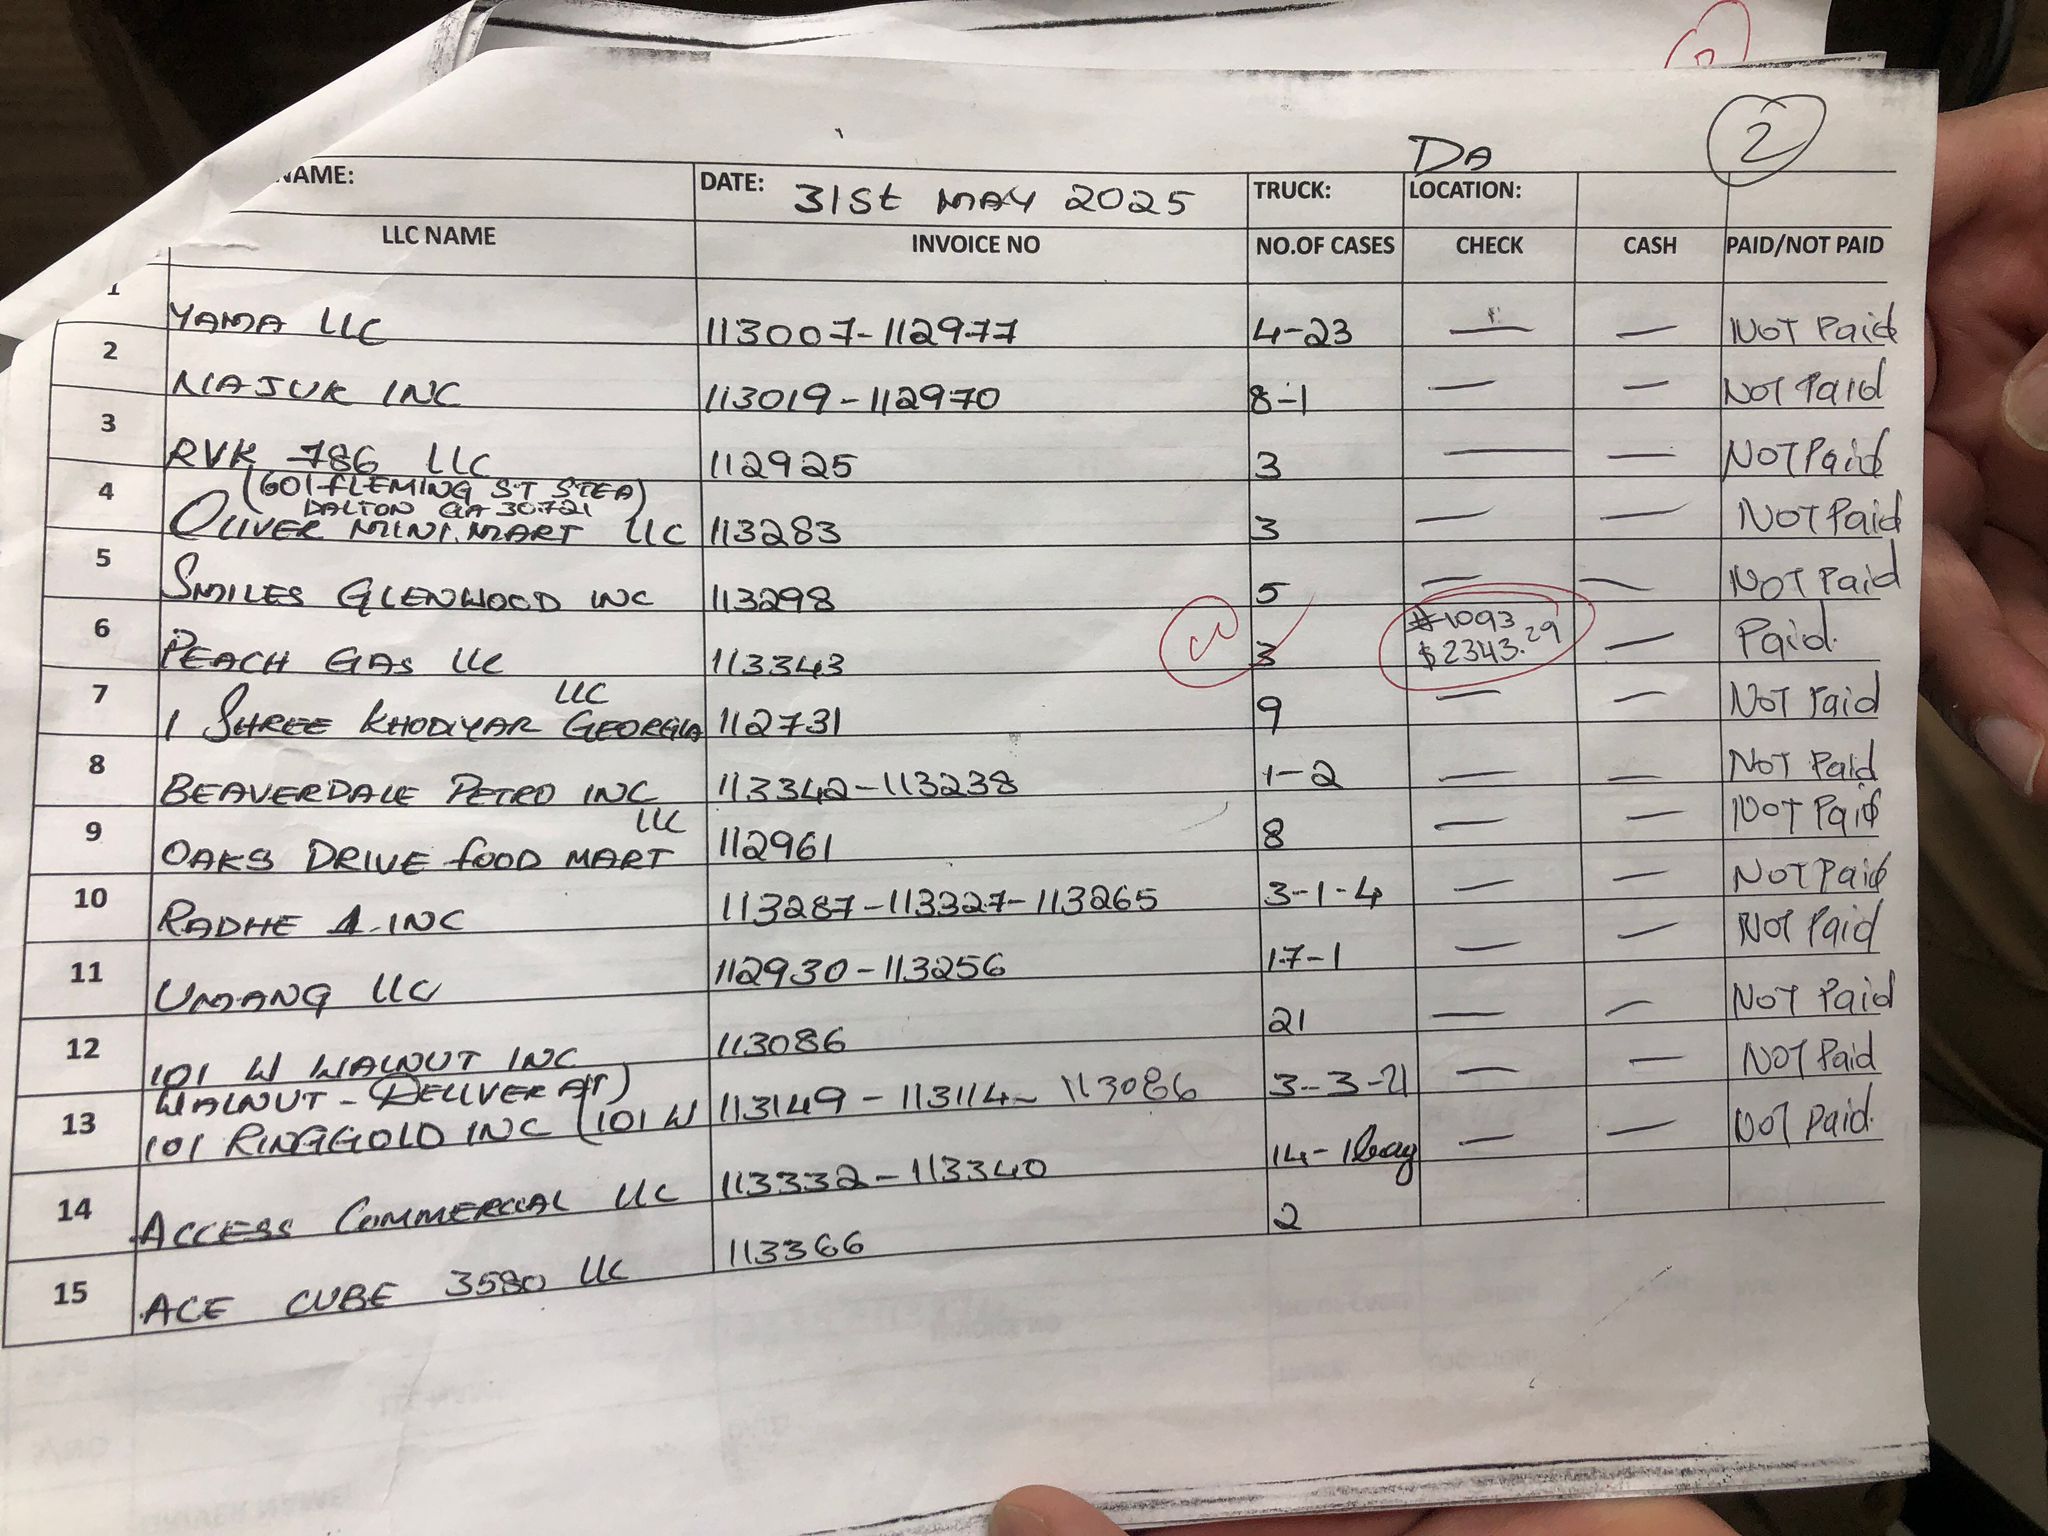 2
DA
NAME: DATE: 31St MAY 2025 TRUCK: LOCATION:
LLC NAME INVOICE NO NO.OF CASES CHECK CASH PAID/NOT PAID
1 YAMA LLC 113007-112977 4-23 — — NOT Paid
2 MAJUK INC 113019-112970 8-1 — — NOT Paid
3 RVK 786 LLC 112925 3 — — NOT Paid
(601 FLEMING ST STEA)
DALTON GA 30721
4 OLIVER MINI MART LLC 113283 3 — — NOT Paid
5 SMILES GLENWOOD INC 113298 5 — — NOT Paid
6 PEACH GAS LLC 113343 3 #1093 $2343.29 — Paid.
7 1 SHREE KHODIYAR GEORGIA LLC 112731 9 — — NOT Paid
8 BEAVERDALE PETRO INC 113342-113238 1-2 — — NOT Paid
9 OAKS DRIVE FOOD MART LLC 112961 8 — — NOT Paid
10 RADHE 1 INC 113287-113327-113265 3-1-4 — — NOT Paid
11 UMANG LLC 112930-113256 17-1 — — NOT Paid
12 101 W WALNUT INC 113086 21 — — NOT Paid
13 101 RINGGOLD INC (101 W 113149-113114-113086 3-3-21 — — NOT Paid
WALNUT - DELIVER AT)
14 ACCESS COMMERCIAL LLC 113332-113340 14-1 — — NOT Paid.
15 ACE CUBE 3580 LLC 113366 2